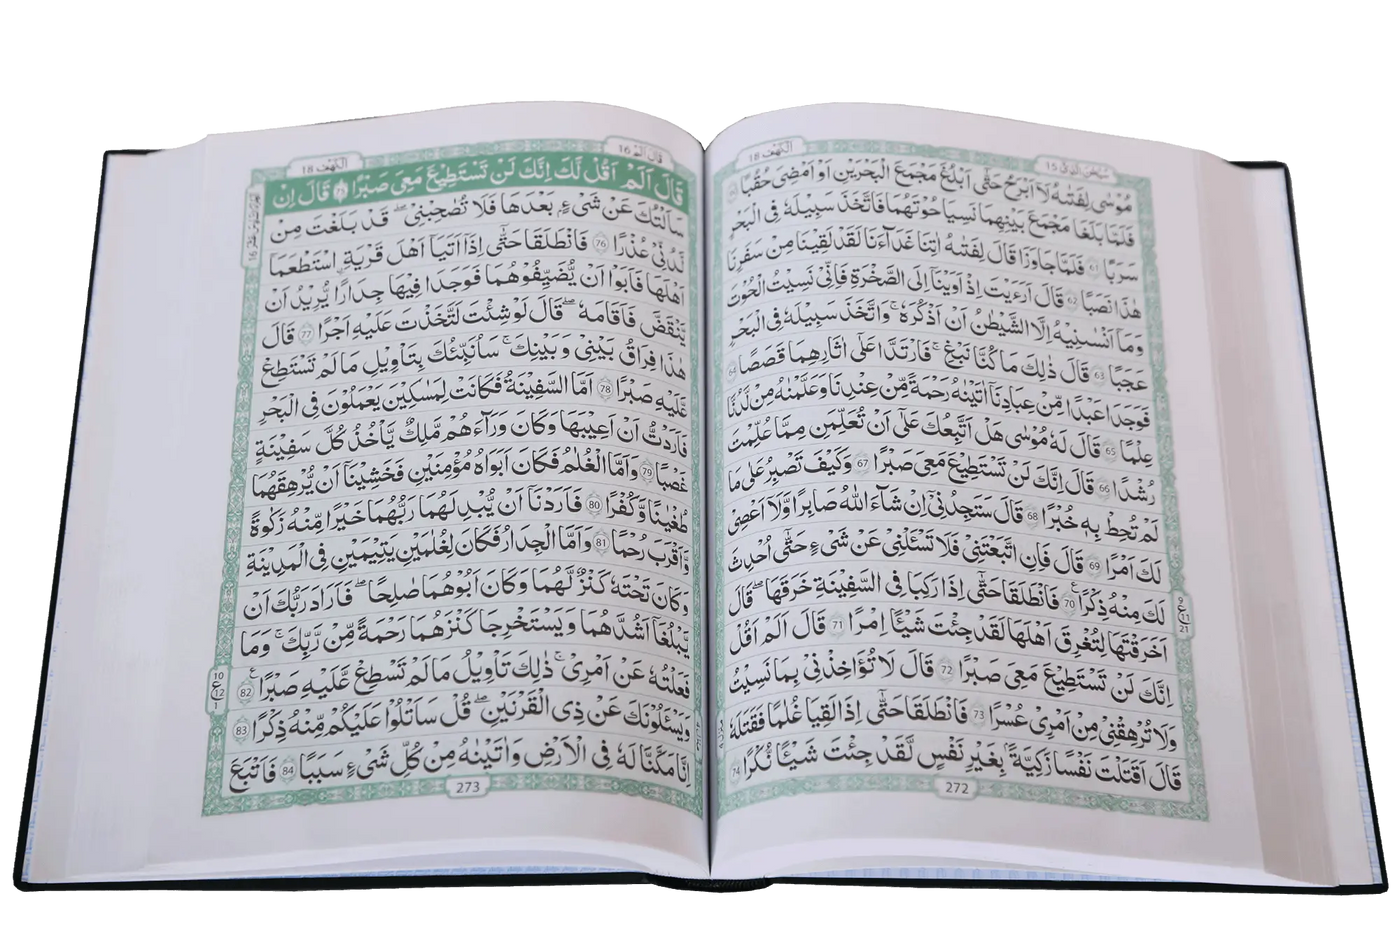 سُبْحٰنَ الَّذِیْ 15
الْكَهْف 18
مُوْسٰى لِفَتٰىهُ لَاۤ اَبْرَحُ حَتّٰۤى اَبْلُغَ مَجْمَعَ الْبَحْرَیْنِ اَوْ اَمْضِیَ حُقُبًا
فَلَمَّا بَلَغَا مَجْمَعَ بَیْنِهِمَا نَسِیَا حُوْتَهُمَا فَاتَّخَذَ سَبِیْلَهٗ فِی الْبَحْرِ
سَرَبًا 61 فَلَمَّا جَاوَزَا قَالَ لِفَتٰىهُ اٰتِنَا غَدَآءَنَا لَقَدْ لَقِیْنَا مِنْ سَفَرِنَا
هٰذَا نَصَبًا 62 قَالَ اَرَءَیْتَ اِذْ اَوَیْنَاۤ اِلَى الصَّخْرَةِ فَاِنِّیْ نَسِیْتُ الْحُوْتَ
وَمَاۤ اَنْسٰىنِیْهُ اِلَّا الشَّیْطٰنُ اَنْ اَذْكُرَهٗ ۚ وَاتَّخَذَ سَبِیْلَهٗ فِی الْبَحْرِ
عَجَبًا 63 قَالَ ذٰلِكَ مَا كُنَّا نَبْغِ ۖ فَارْتَدَّا عَلٰۤى اٰثَارِهِمَا قَصَصًا 64
فَوَجَدَا عَبْدًا مِّنْ عِبَادِنَاۤ اٰتَیْنٰهُ رَحْمَةً مِّنْ عِنْدِنَا وَعَلَّمْنٰهُ مِنْ لَّدُنَّا
عِلْمًا 65 قَالَ لَهٗ مُوْسٰى هَلْ اَتَّبِعُكَ عَلٰۤى اَنْ تُعَلِّمَنِ مِمَّا عُلِّمْتَ
رُشْدًا 66 قَالَ اِنَّكَ لَنْ تَسْتَطِیْعَ مَعِیَ صَبْرًا 67 وَكَیْفَ تَصْبِرُ عَلٰى مَا
لَمْ تُحِطْ بِهٖ خُبْرًا 68 قَالَ سَتَجِدُنِیْۤ اِنْ شَآءَ اللّٰهُ صَابِرًا وَّلَاۤ اَعْصِیْ
لَكَ اَمْرًا 69 قَالَ فَاِنِ اتَّبَعْتَنِیْ فَلَا تَسْـَٔلْنِیْ عَنْ شَیْءٍ حَتّٰۤى اُحْدِثَ
لَكَ مِنْهُ ذِكْرًا 70 فَانْطَلَقَا حَتّٰۤى اِذَا رَكِبَا فِی السَّفِیْنَةِ خَرَقَهَا ۖ قَالَ
اَخَرَقْتَهَا لِتُغْرِقَ اَهْلَهَا لَقَدْ جِئْتَ شَیْـًٔا اِمْرًا 71 قَالَ اَلَمْ اَقُلْ
اِنَّكَ لَنْ تَسْتَطِیْعَ مَعِیَ صَبْرًا 72 قَالَ لَا تُؤَاخِذْنِیْ بِمَا نَسِیْتُ
وَلَا تُرْهِقْنِیْ مِنْ اَمْرِیْ عُسْرًا 73 فَانْطَلَقَا حَتّٰۤى اِذَا لَقِیَا غُلٰمًا فَقَتَلَهٗ
قَالَ اَقَتَلْتَ نَفْسًا زَكِیَّةًۢ بِغَیْرِ نَفْسٍ لَّقَدْ جِئْتَ شَیْـًٔا نُّكْرًا 74
9
ع
11
21
272
قَالَ اَلَمْ 16
الْكَهْف 18
قَالَ اَلَمْ اَقُلْ لَّكَ اِنَّكَ لَنْ تَسْتَطِیْعَ مَعِیَ صَبْرًا قَالَ اِنْ
سَاَلْتُكَ عَنْ شَیْءٍۭ بَعْدَهَا فَلَا تُصٰحِبْنِیْ ۖ قَدْ بَلَغْتَ مِنْ
لَّدُنِّیْ عُذْرًا 76 فَانْطَلَقَا حَتّٰۤى اِذَاۤ اَتَیَاۤ اَهْلَ قَرْیَةِ ِۨاسْتَطْعَمَاۤ
اَهْلَهَا فَاَبَوْا اَنْ یُّضَیِّفُوْهُمَا فَوَجَدَا فِیْهَا جِدَارًا یُّرِیْدُ اَنْ
یَّنْقَضَّ فَاَقَامَهٗ ۖ قَالَ لَوْ شِئْتَ لَتَّخَذْتَ عَلَیْهِ اَجْرًا 77 قَالَ
هٰذَا فِرَاقُ بَیْنِیْ وَبَیْنِكَ ۚ سَاُنَبِّئُكَ بِتَاْوِیْلِ مَا لَمْ تَسْتَطِعْ
عَّلَیْهِ صَبْرًا 78 اَمَّا السَّفِیْنَةُ فَكَانَتْ لِمَسٰكِیْنَ یَعْمَلُوْنَ فِی الْبَحْرِ
فَاَرَدْتُّ اَنْ اَعِیْبَهَا وَكَانَ وَرَآءَهُمْ مَّلِكٌ یَّاْخُذُ كُلَّ سَفِیْنَةٍ
غَصْبًا 79 وَاَمَّا الْغُلٰمُ فَكَانَ اَبَوٰهُ مُؤْمِنَیْنِ فَخَشِیْنَاۤ اَنْ یُّرْهِقَهُمَا
طُغْیَانًا وَّكُفْرًا 80 فَاَرَدْنَاۤ اَنْ یُّبْدِلَهُمَا رَبُّهُمَا خَیْرًا مِّنْهُ زَكٰوةً
وَّاَقْرَبَ رُحْمًا 81 وَاَمَّا الْجِدَارُ فَكَانَ لِغُلٰمَیْنِ یَتِیْمَیْنِ فِی الْمَدِیْنَةِ
وَكَانَ تَحْتَهٗ كَنْزٌ لَّهُمَا وَكَانَ اَبُوْهُمَا صَالِحًا ۖ فَاَرَادَ رَبُّكَ اَنْ
یَّبْلُغَاۤ اَشُدَّهُمَا وَیَسْتَخْرِجَا كَنْزَهُمَا رَحْمَةً مِّنْ رَّبِّكَ ۚ وَمَا
فَعَلْتُهٗ عَنْ اَمْرِیْ ۚ ذٰلِكَ تَاْوِیْلُ مَا لَمْ تَسْطِعْ عَّلَیْهِ صَبْرًا 82
وَیَسْـَٔلُوْنَكَ عَنْ ذِی الْقَرْنَیْنِ ۖ قُلْ سَاَتْلُوْا عَلَیْكُمْ مِّنْهُ ذِكْرًا 83
اِنَّا مَكَّنَّا لَهٗ فِی الْاَرْضِ وَاٰتَیْنٰهُ مِنْ كُلِّ شَیْءٍ سَبَبًا 84 فَاَتْبَعَ
10
ع
12
1
273